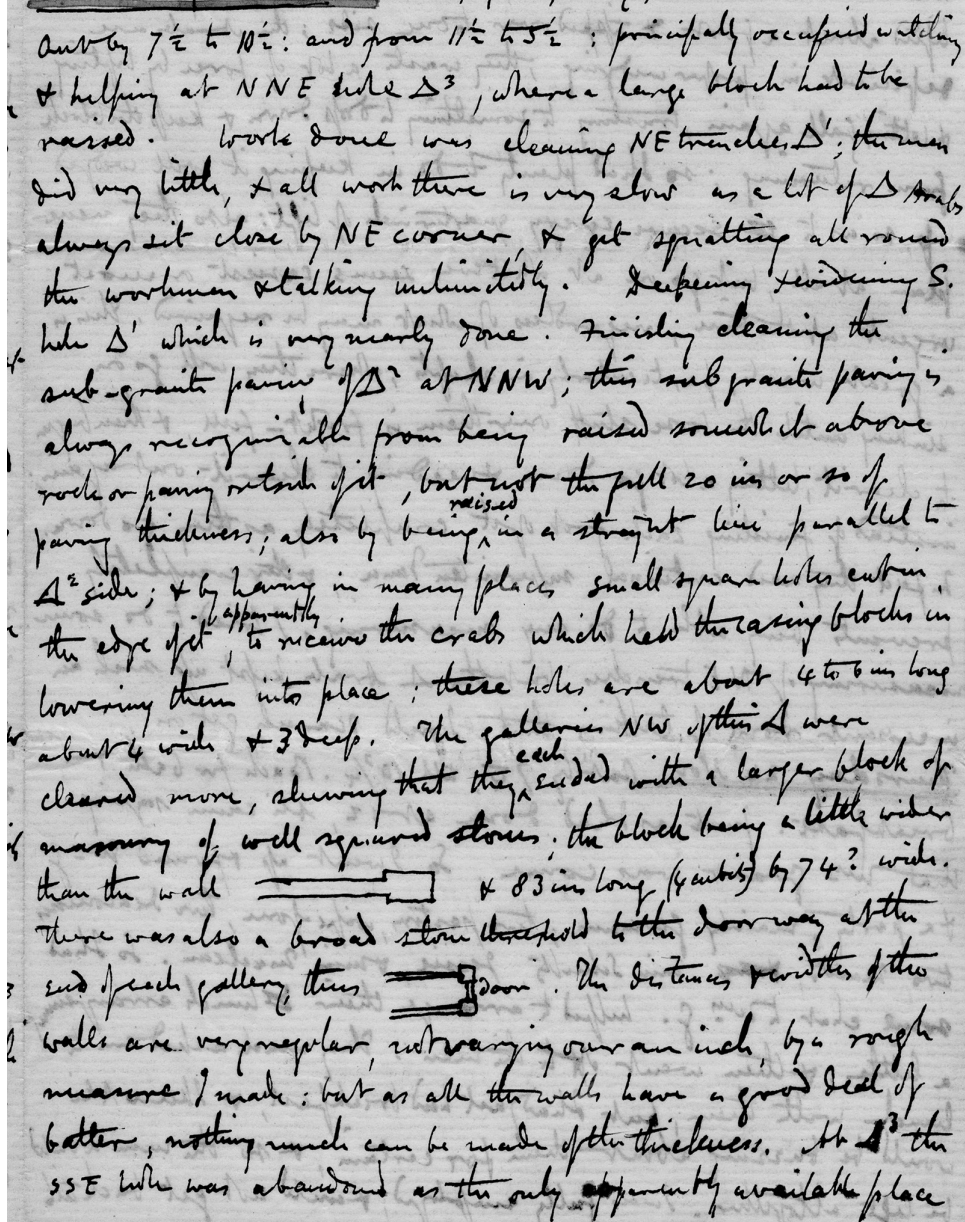 Out by 7½ to 10½: and from 11½ to 5½; principally occupied watching
& helping at NNE hole Δ³, where a large block had to be
raised. Work done was cleaning NE trenches Δ¹; the men
did very little, & all work there is very slow as a lot of Δ Arabs
always sit close by NE corner, & get squatting all round
the workmen & talking unlimitedly. Deepening & widening S.
hole Δ¹ which is very nearly done. Finishing cleaning the
sub-granite paving of Δ² at NNW; this sub granite paving is
always recognisable from being raised somewhat above
rock or paving outside of it, but not the full 20 ins or so of
paving thickness; also by being raised in a straight line parallel to
Δ² side; & by having in many places small square holes cut in
the edge of it, apparently to receive the crabs which held the casing blocks in
lowering them into place; these holes are about 4 to 6 ins long
about 4 wide & 3 deep. The galleries NW of this Δ were
cleared more, shewing that they each ended with a larger block of
masonry of well squared stones; the block being a little wider
than the wall & 83 ins long (4 cubits) by 74? wide.
There was also a broad stone threshold to the doorway at the
end of each gallery, thus door. The distances & widths of the
walls are very regular, not varying over an inch, by a rough
measure I made: but as all the walls have a good deal of
batter, nothing much can be made of the thickness. At Δ³ the
SSE hole was abandoned as the only apparently available place